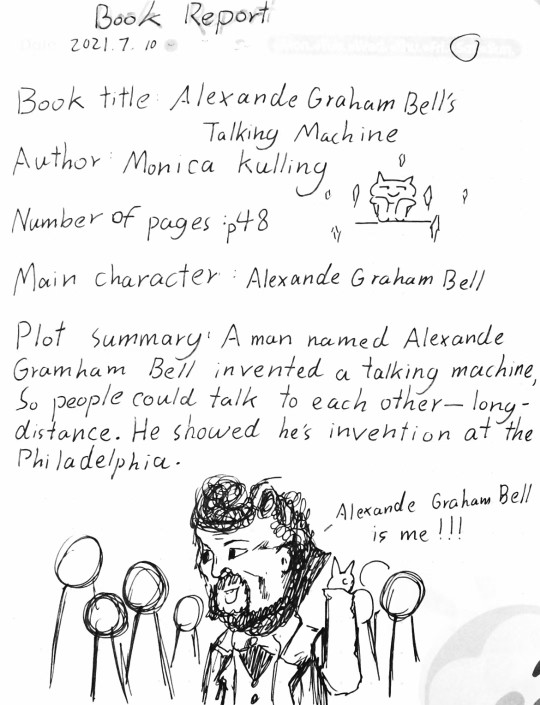 Book Report
2021.7.10
Book title: Alexande Graham Bell's
Talking Machine
Author: Monica Kulling
Number of pages: p48
Main character: Alexande Graham Bell
Plot summary: A man named Alexande
Gramham Bell invented a talking machine,
So people could talk to each other—long-
distance. He showed he's invention at the
Philadelphia.
Alexande Graham Bell
is me!!!